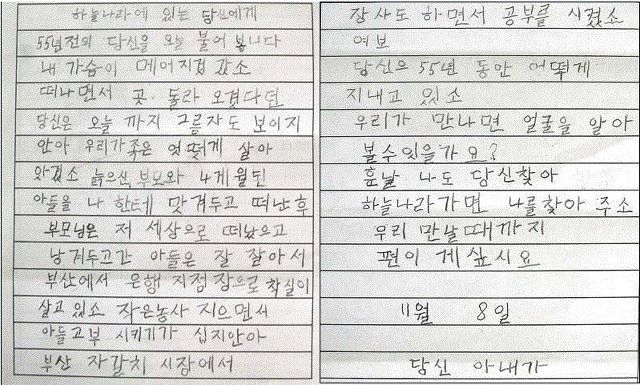 하늘나라에 있는 당신에게
55년전의 당신을 오늘 불어 봅니다
내 가슴이 메어지겄 갔소
떠나면서 곳. 돌라 오겠다던
당신은 오늘 까지 그름자도 보이지
안아 우리가족은 엇떻게 살아
와겠소 늙으신 부모와 4개월된
아들을 나 한테 맛겨두고 떠난후
부모님은 저 세상으로 떠났으고
남겨두고간 아들은 잘 잘아서
부산에서 은행 지점 장으로 착실이
살고 있소 작은농사 지으면서
아들고부 시키기가 십지안아
부산 자갈치 시장에서
잠사도 하면서 공부를 시켰소
여보
당신으 55년 동안 어떻게
지내고 있소
우리가 만나면 얼굴을 알아
볼수있을가 요?
훗날 나도 당신찾아
하늘나라가면 나를찾아 주소
우리 만날때까지
편이 게십시요
11월 8일
당신 아내가